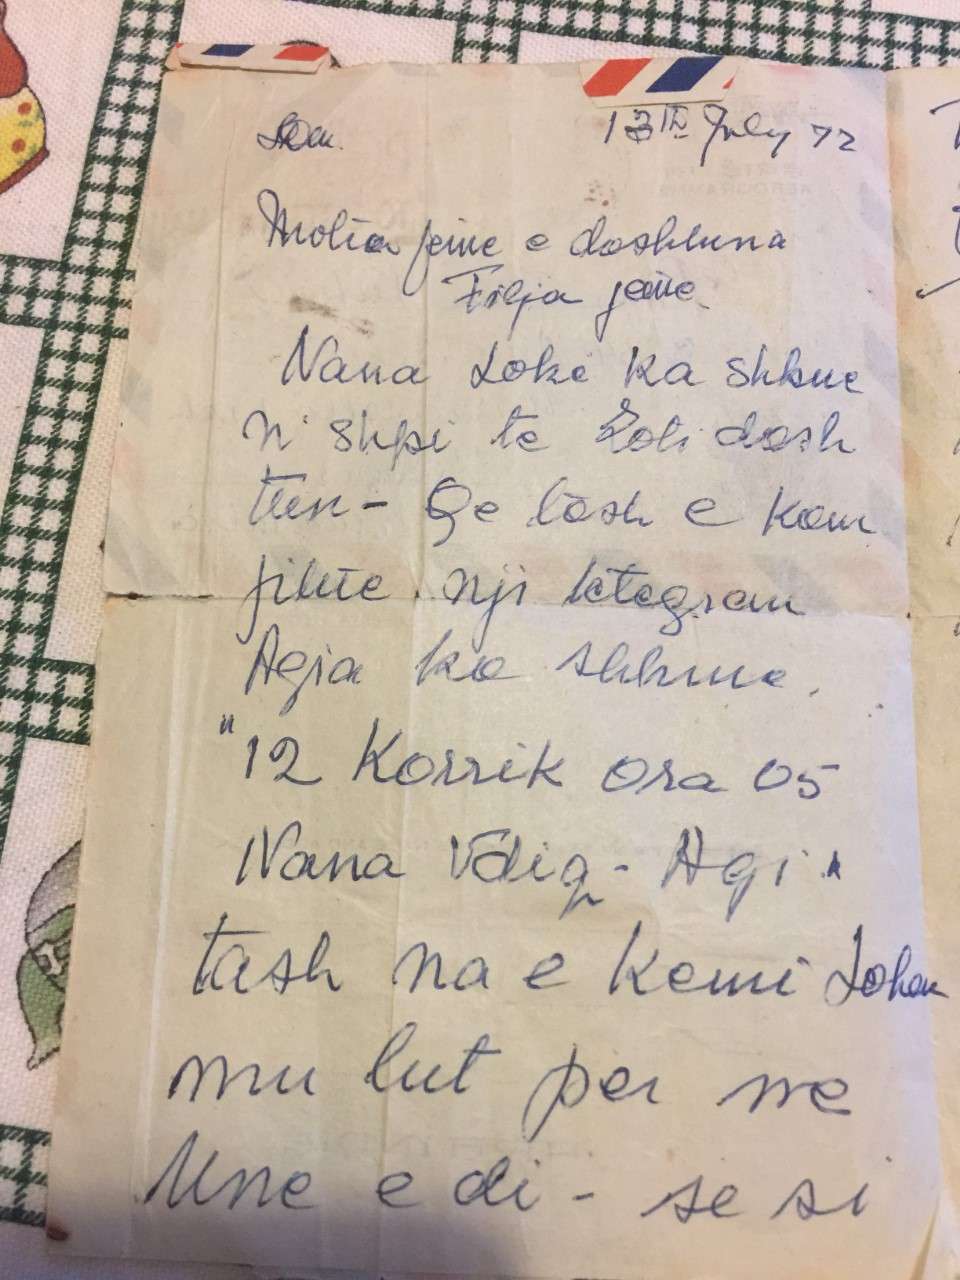 13TH July 72
Motra jeme e dashtuna
Filja jeme.
Nana Loke ka shkue
n' shpi te Zoti dash
tun - Qe tash e kam
jihte nji letegram
Agia ka shkue.
"12 Korrik ora 05
Nana Vdiq - Agi "
tash na e kemi Lohen
mu lut per ne
Une e di - se si